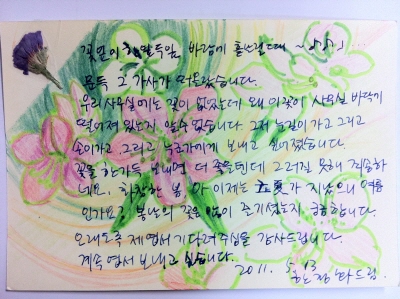 꽃잎이 한말두잎 바람에 흩날릴때 ~ ♪♪♪ ...
문득 그 가사가 떠올랐습니다.
우리사무실에는 꽃이 없었는데 왜 이꽃이 사무실 바닥에
떨어져 있는지 알수 없습니다. 그저 눈길이 가고 그리고
손이가고 그리고 누군가에게 보내고 싶어졌습니다.
꽃을 한가득 보내면 더 좋을텐데 그러질 못해 죄송하
네요. 화창한 봄, 아 이제는 立夏가 지났으니 여름
인가요? 봄날의 꽃은 많이 즐기셨는지 궁금합니다.
오래도록 제엽서 기다려주심을 감사드립니다.
계속 엽서 보내고 싶습니다.
2011. 5. 13
드림.